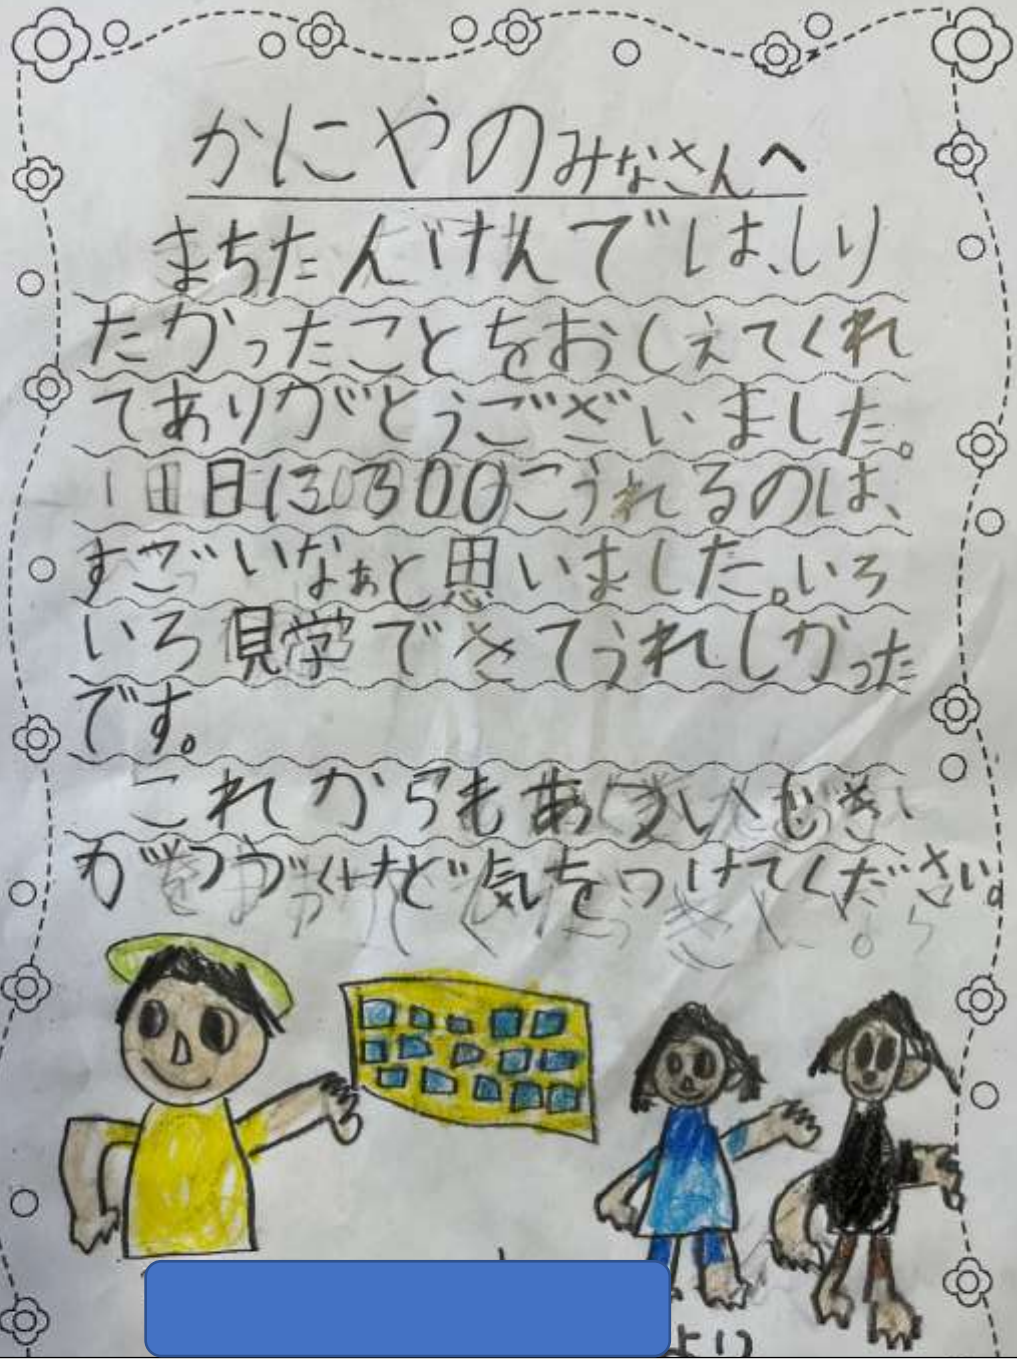 かにやのみなさんへ
まちたんけんでは、しり
たがったことをおしえてくれ
てありがとうございました。
1日に300こうれるのは、
すごいなぁと思いました。いろ
いろ見学できてうれしかった
です。
これからもあつい
がつづくけど気をつけてください。
より